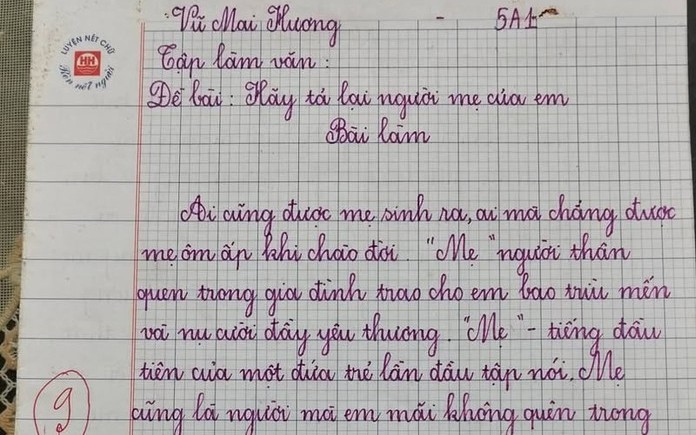 Vũ Mai Hương - 5A1
LUYỆN NÉT CHỮ
HH
Rèn nết người
Tập làm văn :
Đề bài : Hãy tả lại người mẹ của em
Bài làm
Ai cũng được mẹ sinh ra, ai mà chẳng được
mẹ ôm ấp khi chào đời. "Mẹ" người thân
quen trong gia đình trao cho em bao trìu mến
và nụ cười đầy yêu thương. "Mẹ" - tiếng đầu
tiên của một đứa trẻ lần đầu tập nói. Mẹ
cũng là người mà em mãi không quên trong
9